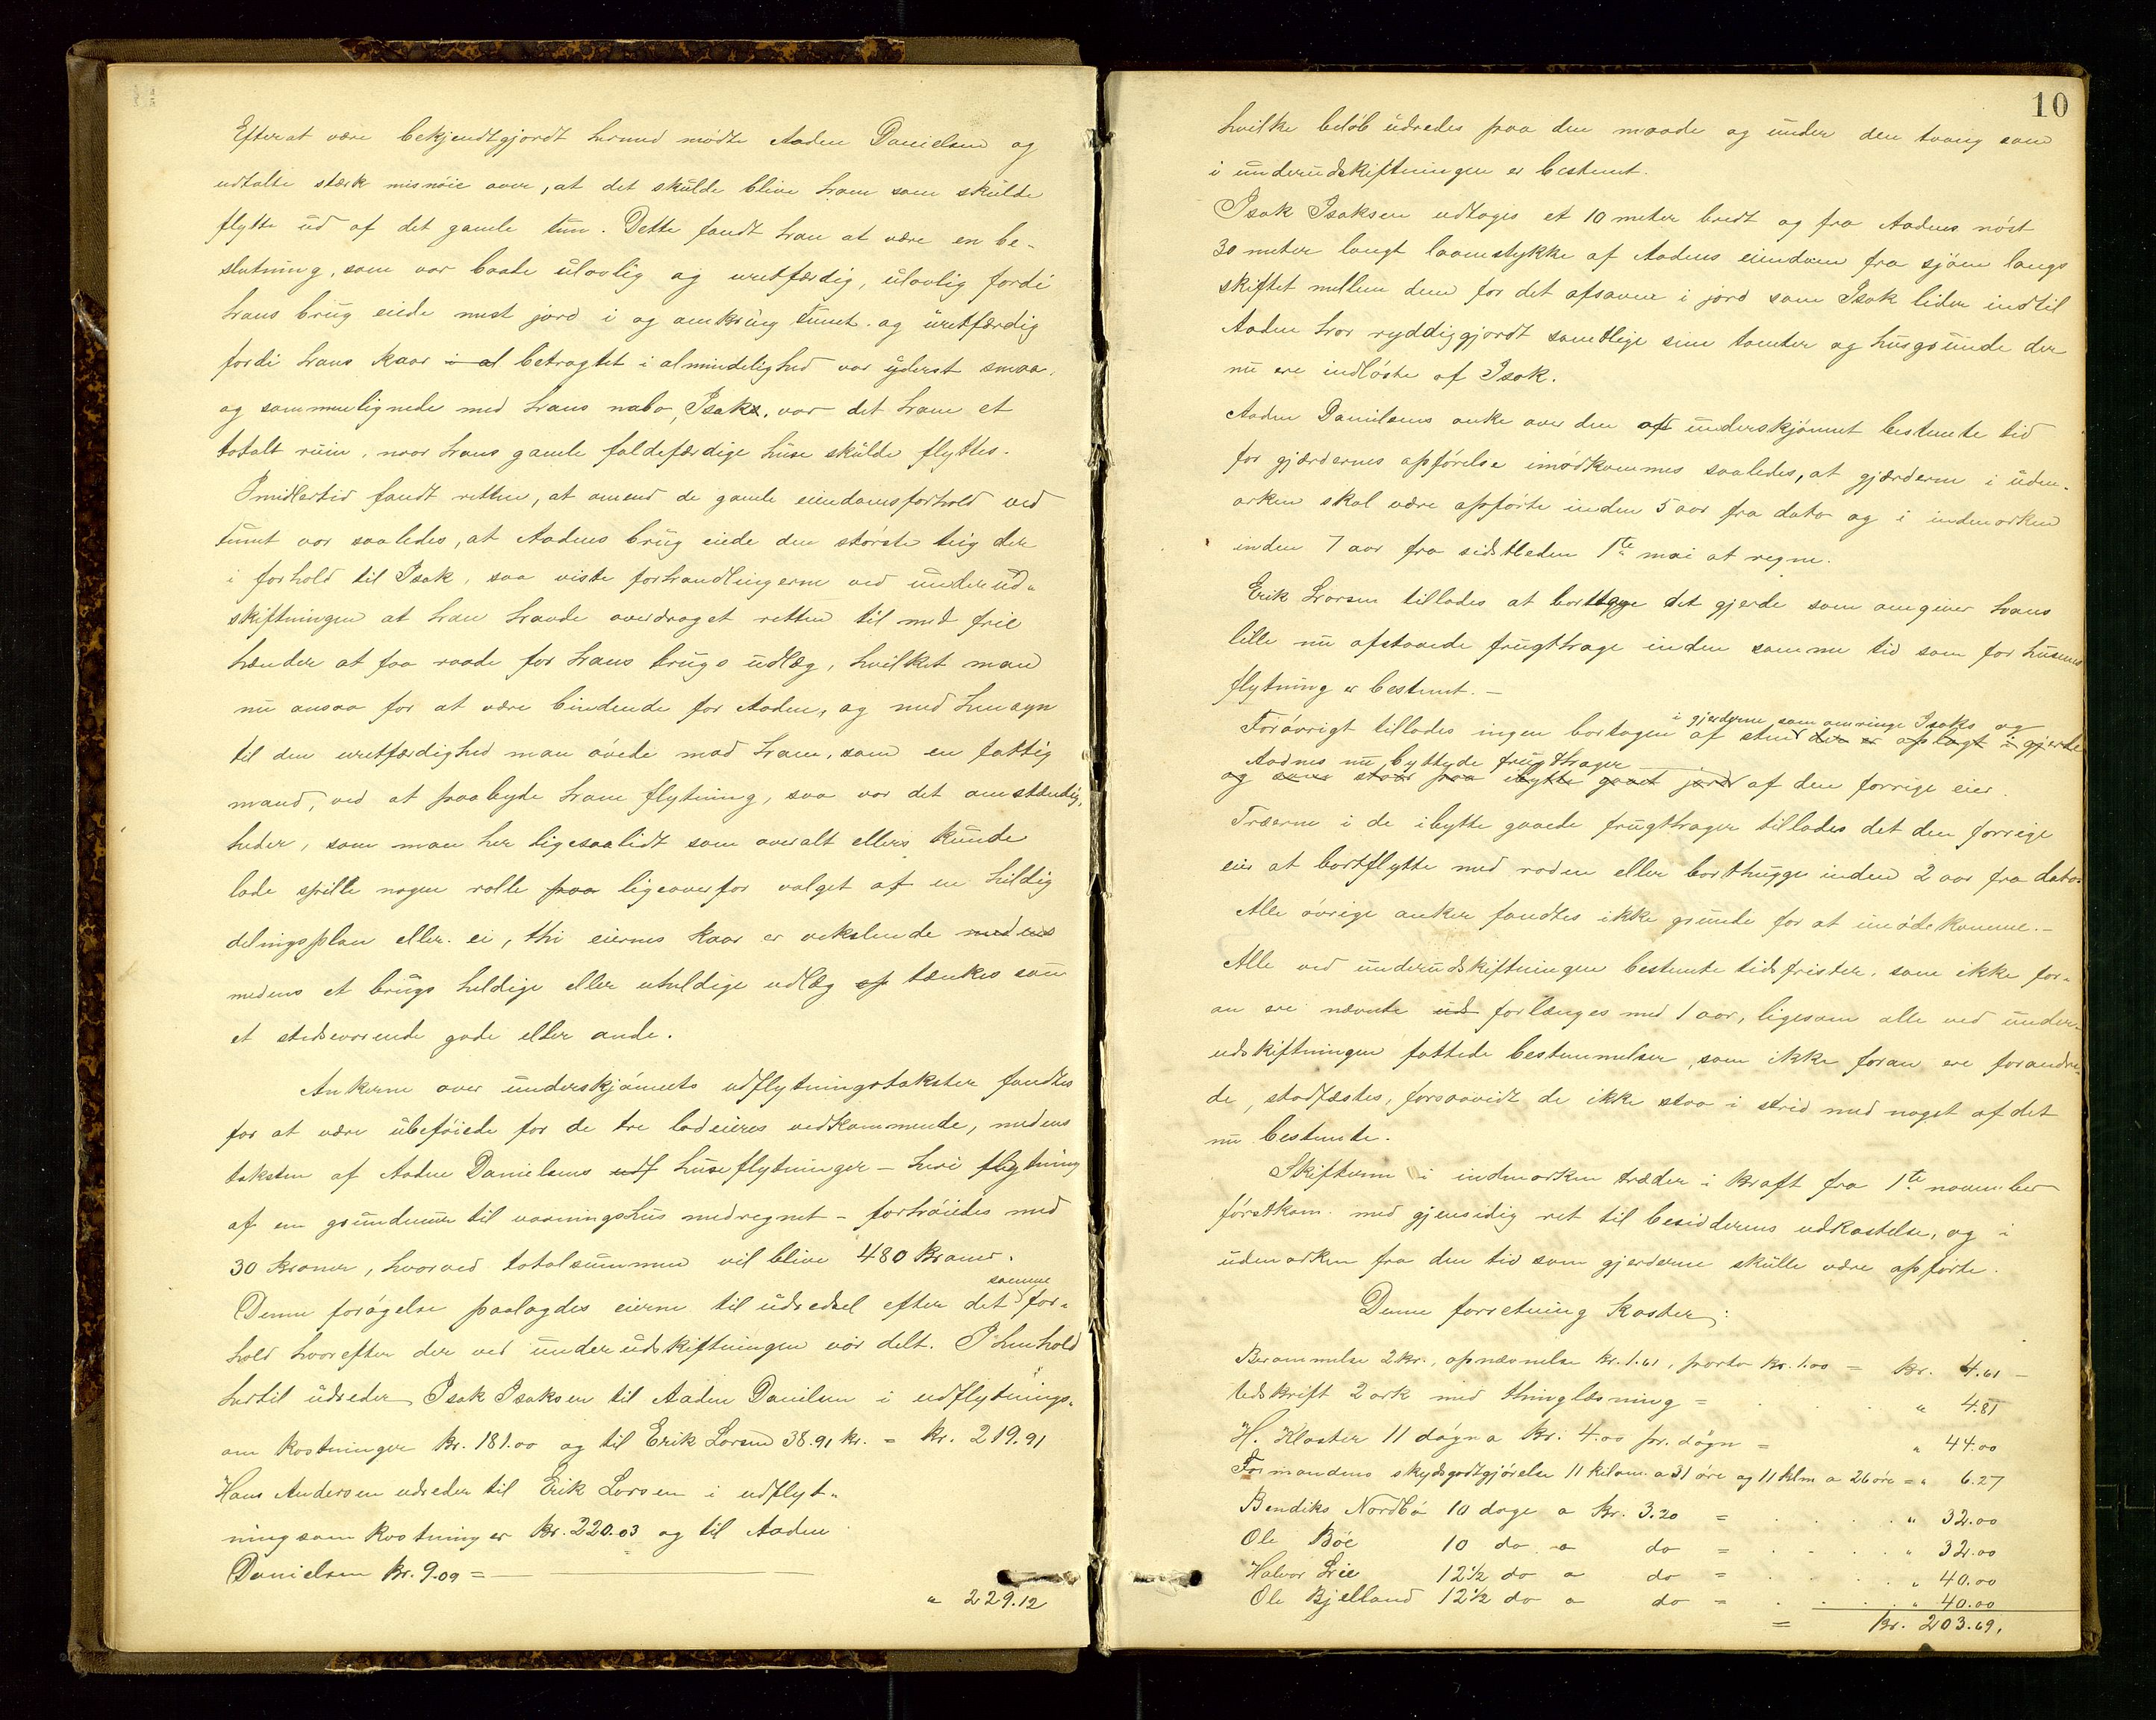 Efter at være bekjendtgjordt hermed mødte Aaden Danielsen og
udtalte stærk misnöie over, at det skulde blive ham som skulde
flytte ud af det gamle tun. Dette fandt han at være en be-
slutning, som var baade ulovlig og uretfærdig, ulovlig fordi
hans brug eiede mest jord i og omkring tunet og uretfærdig
fordi hans kaar i al betragtet i almindelighed var yderst smaa,
og sammenlignede med hans nabo, Isaks, var det ham et
totalt ruin, naar hans gamle faldefærdige huse skulde flyttes.
Imidlertid fandt retten, at omend de gamle eiendomsforhold ved
tunet var saaledes, at Aadens brug eiede den störste teig der
i forhold til Isak, saa viste forhandlingerne ved underud-
skiftningen at han havde overdraget retten til med frie
hænder at faa raade for hans brugs udlæg, hvilket man
nu ansaa for at være bindende for Aaden, og med hensyn
til den uretfærdighed man övede mod ham, som en fattig
mand, ved at paabyde ham flytning, saa var det omstændig-
heder, som man her ligesaalidt som overalt ellers kunde
lade spille nogen rolle paa ligeoverfor valget af en heldig
delingsplan eller ei, thi eiernes kaar er vekslende medens
medens et brugs heldige eller uheldige udlæg op tænkes som
et stedsevarende gode eller onde.
Ankerne over underskjönnets udflytningstakster fandtes
for at være ubeföiede for de tre lodeieres vedkommende, medens
taksten af Aaden Danielsens udf huseflytninger - heri flytning
af en grundmur til vaaningshus medregnet - forhöiedes med
30 kroner, hvorved totalsummen vil blive 480 kroner.
Denne forögelse paalagdes eierne til udredsel efter det samme for-
hold hvorefter der ved underudskiftningen var delt. I henhold
hertil udreder Isak Isaksen til Aaden Danielsen i udflytnings-
omkostninger kr. 181.00 og til Erik Larsen 38.91 kr. = kr. 219.91
Hans Andersen udreder til Erik Larsen i udflyt-
ningsomkostninger kr. 220.03 og til Aaden
Danielsen kr. 9.09 = —
" 229.12
10
hvilke belöb udredes paa den maade og under den tvang som
i underudskiftningen er bestemt.
Isak Isaksen udtages et 10 meter bredt og fra Aadens nöst
30 meter langt laanestykke af Aadens eiendom fra sjöen langs
skiftet mellem dem for det afsavn i jord som Isak lider indtil
Aaden har ryddiggjordt samtlige sine tomter og husgrunde der
nu ere indlöste af Isak.
Aaden Danielsens anke over den af underskjönnet bestemte tid
for gjærdernes opförelse imödkommes saaledes, at gjærderne i udm-
arken skal være opförte inden 5 aar fra dato og i indmarken
inden 7 aar fra sidstleden 1te mai at regne.
Erik Larsen tillades at borttage det gjerde som omgiver hans
lille nu afstaaede frugthage inden samme tid som for husenes
flytning er bestemt. -
Forövrigt tillades ingen bortagen af sten der er oplagt i gjerde
i gjerderne, som omringe Isaks og
Aadnes nu byttede frugthager
og som staar paa ibytte gaaet jord af den forrige eier.
Træerne i de ibytte gaaede frugthager tillades det den forrige
eier at bortflytte med roden eller borthugge inden 2 aar fra dato.
Alle övrige anker fandtes ikke grunde for at imödekomme. -
Alle ved underudskiftningen bestemte tidsfrister, som ikke for-
an ere nævnte uds forlænges med 1 aar, ligesom alle ved under-
udskiftningen fattede bestemmelser, som ikke foran ere forandre-
de, stadfæstes, forsaavidt de ikke staa i strid med noget af det
nu bestemte.
Skifterne i indmarken træder i kraft fra 1te november
förstkom. med gjensidig ret til besiddernes udkastelse, og i
udmarken fra den tid som gjerderne skulle være opförte.
Denne forretning koster:
Berammelse 2 kr., opnævnelse kr. 1.61, porto kr. 1.00 = kr. 4.61
Udskrift 2 ark med thinglæsning = " 4.81
H. Kloster 11 dögn a kr. 4.00 pr. dögn = " 44.00
Formandens skydsgodtgjörelse 11 kilom. a 31 öre og 11 klm a 26 öre = " 6.27
Bendiks Nordbö 10 dage a kr. 3.20 = " 32.00
Ole Böe 10 do a do = " 32.00
Halvor Lie 12½ do a do = " 40.00
Ole Bjelland 12½ do a do = " 40.00
= kr. 203.69.